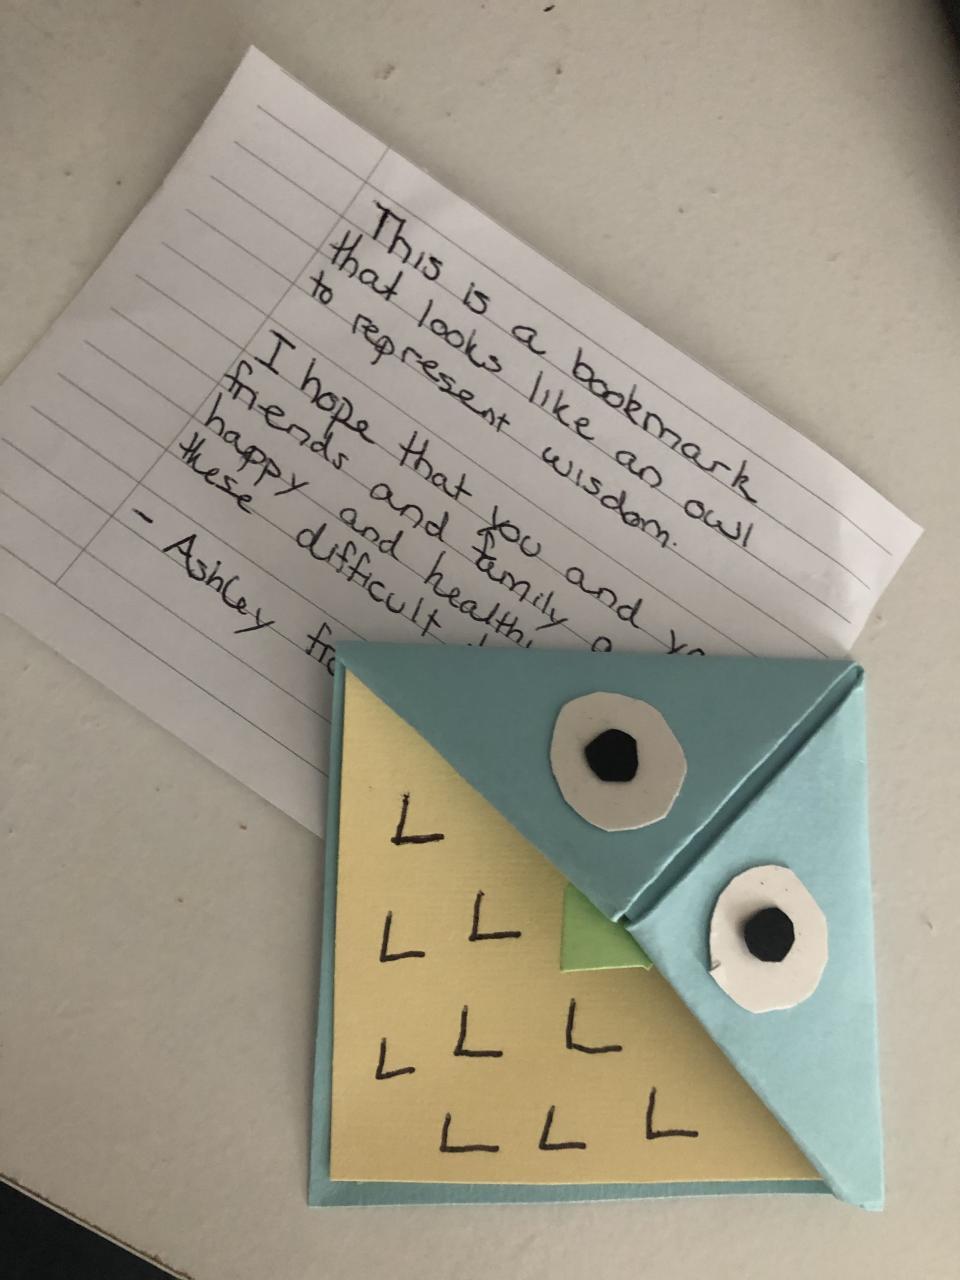 This is a bookmark
that looks like an owl
to represent wisdom.
I hope that you and
friends and family
happy and
these difficult
- Ashley